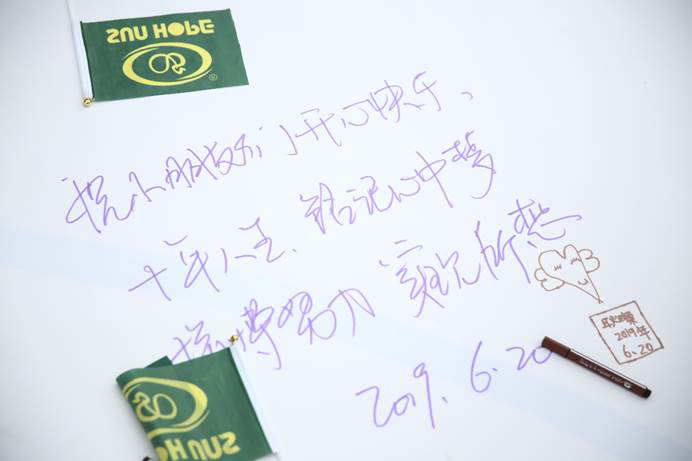 SUN HOPE
®
祝小朋友们开心快乐、
十年人生、铭记心中梦
拼搏努力 实现所想
2019.6.20
2019年
6.20
SUN HOPE